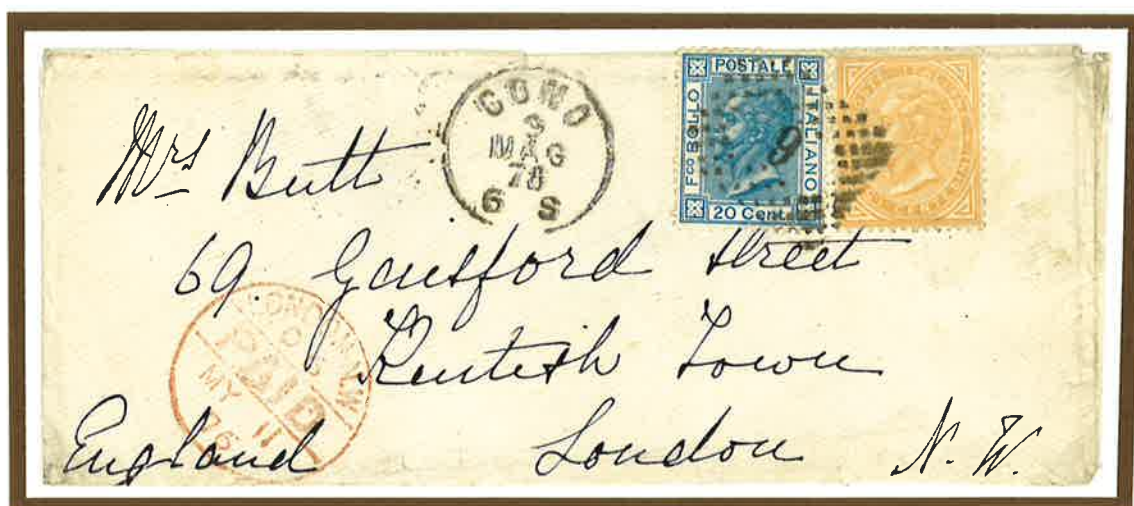 COMO
9
MAG
76
6 S
POSTALE
Fco BOLLO
ITALIANO
20 Cent
9
Mrs Butt
69. Gaisford Street
Kentish Town
London N. W.
England
LONDON N.W
PAID
MY 11
76